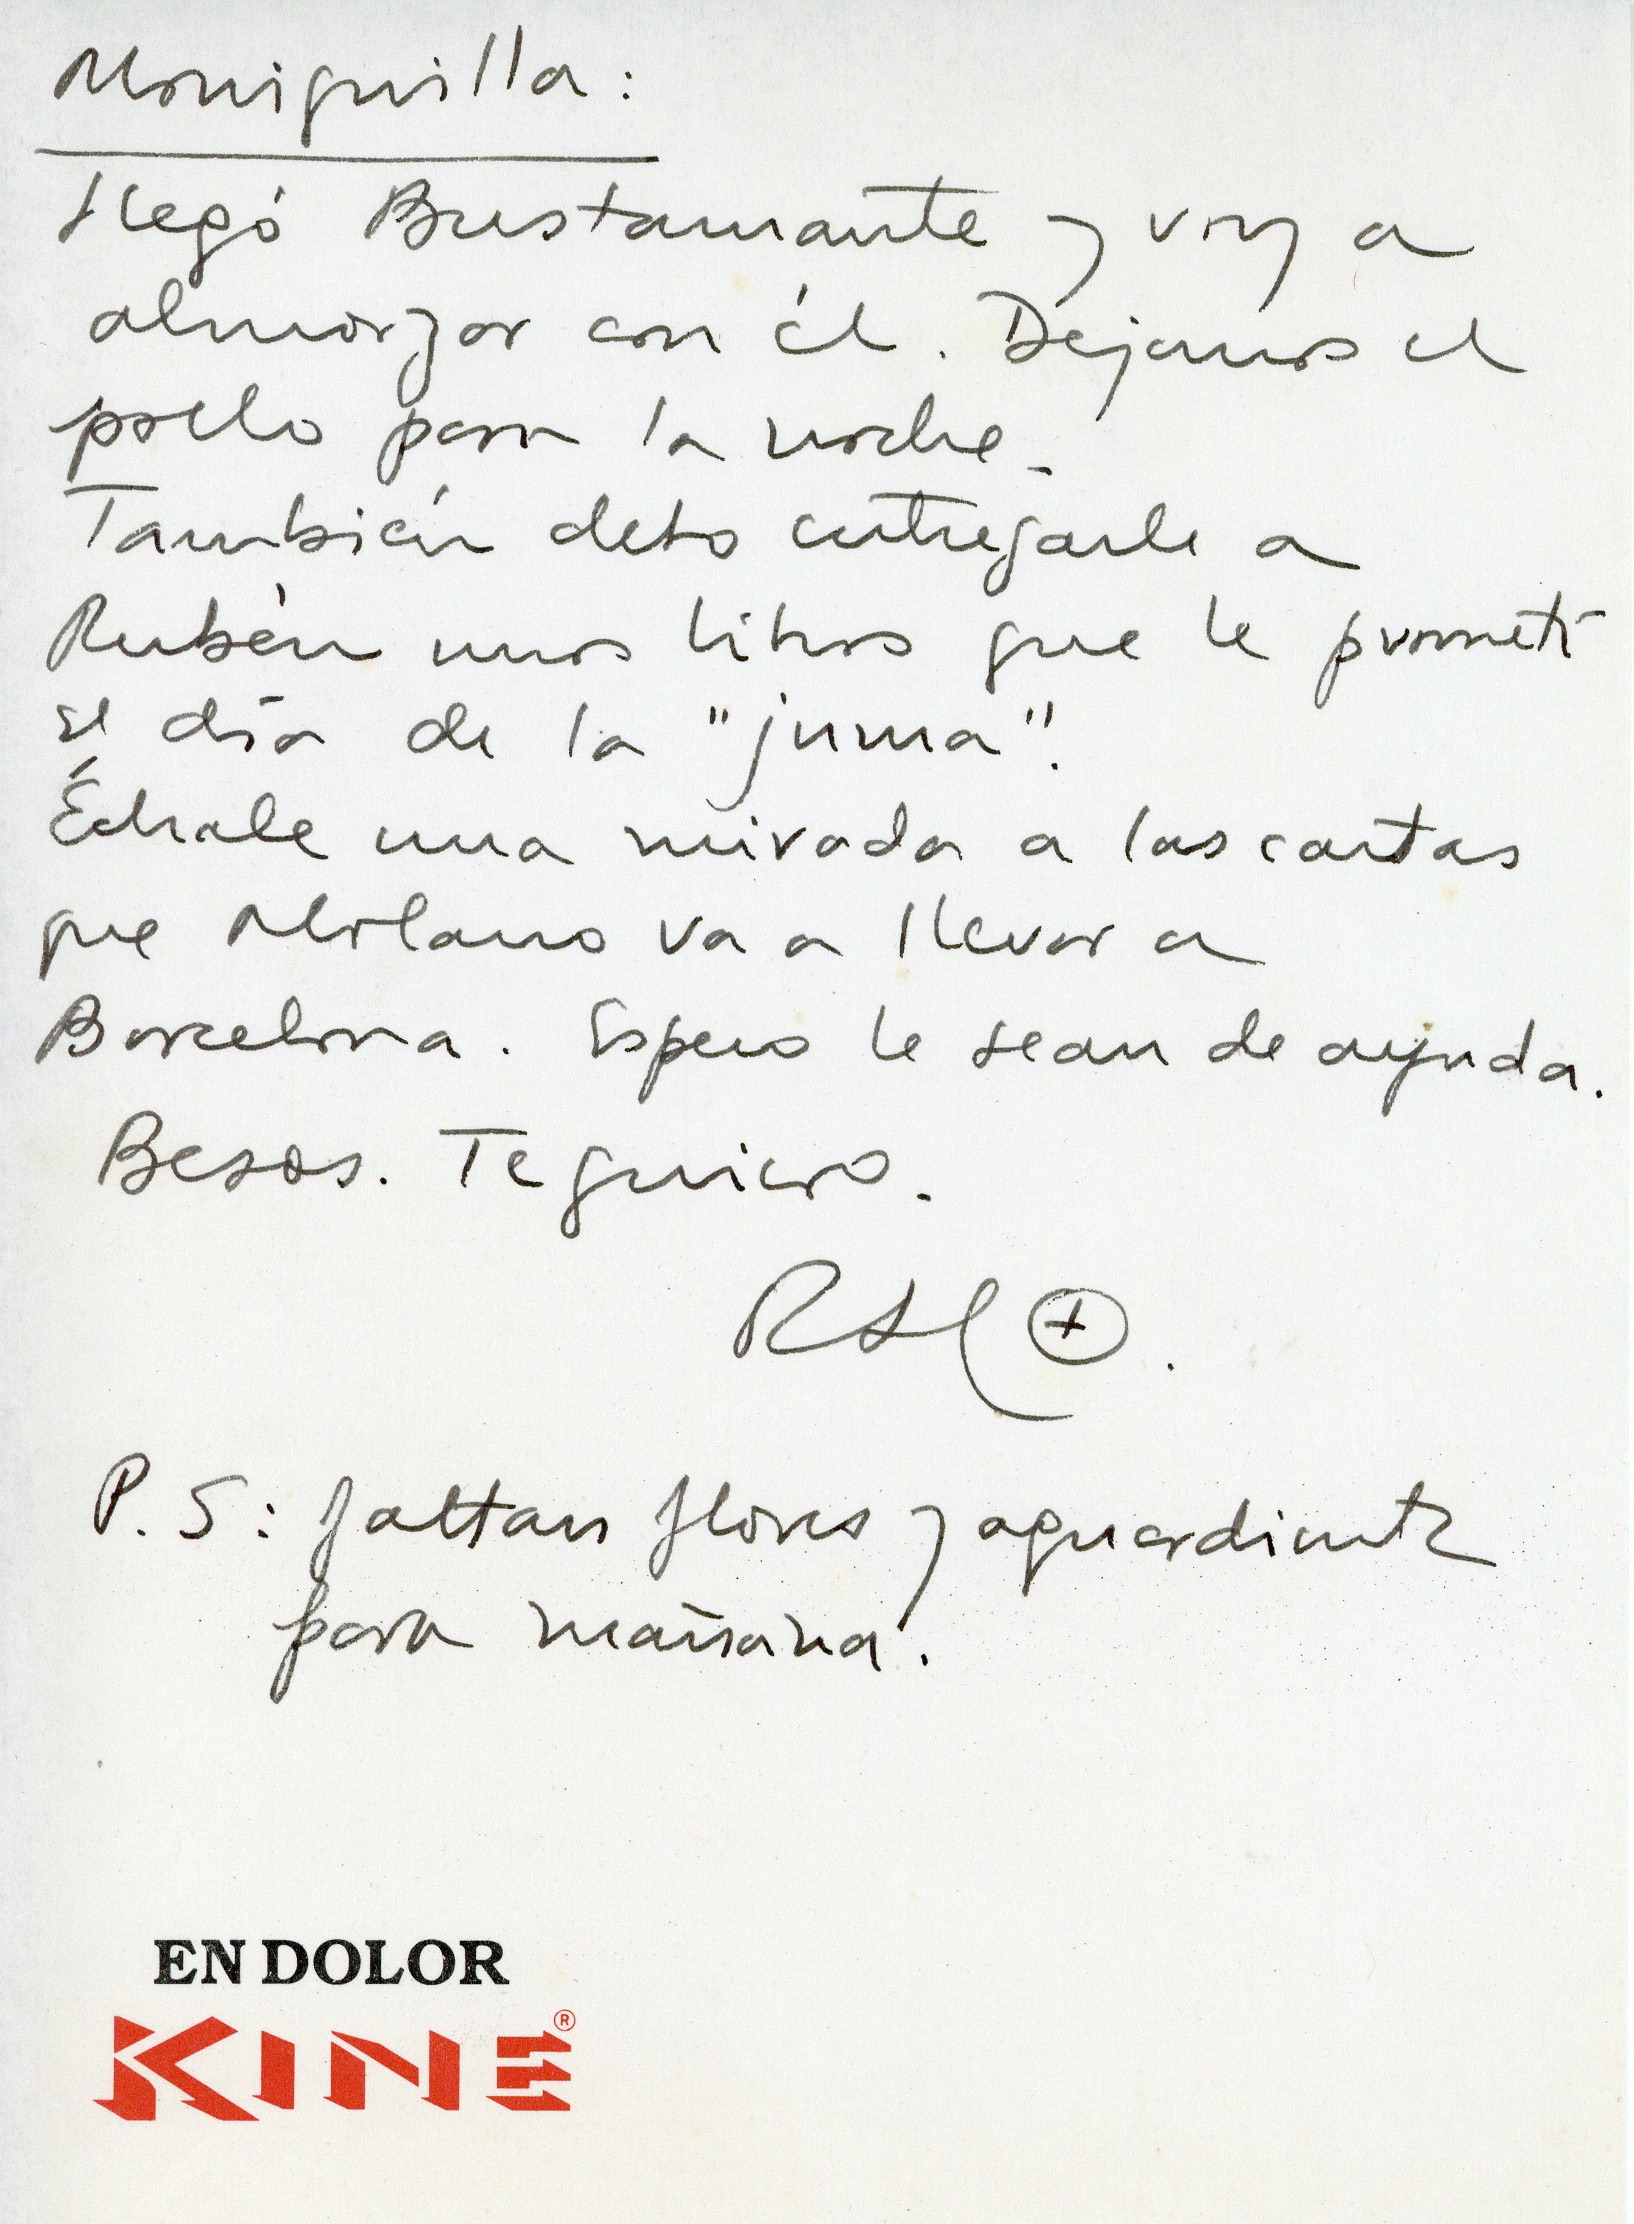 Moniquilla:
Llegó Bustamante y voy a
almorzar con él. Dejamos el
pollo para la noche.
También debo entregarle a
Rubén unos libros que le prometí
el día de la "juma".
Échale una mirada a las cartas
que Molano va a llevar a
Barcelona. Espero le sean de ayuda.
Besos. Te quiero.
RH +.
P.S: faltan flores y aguardiente
para mañana.
EN DOLOR
KINE®